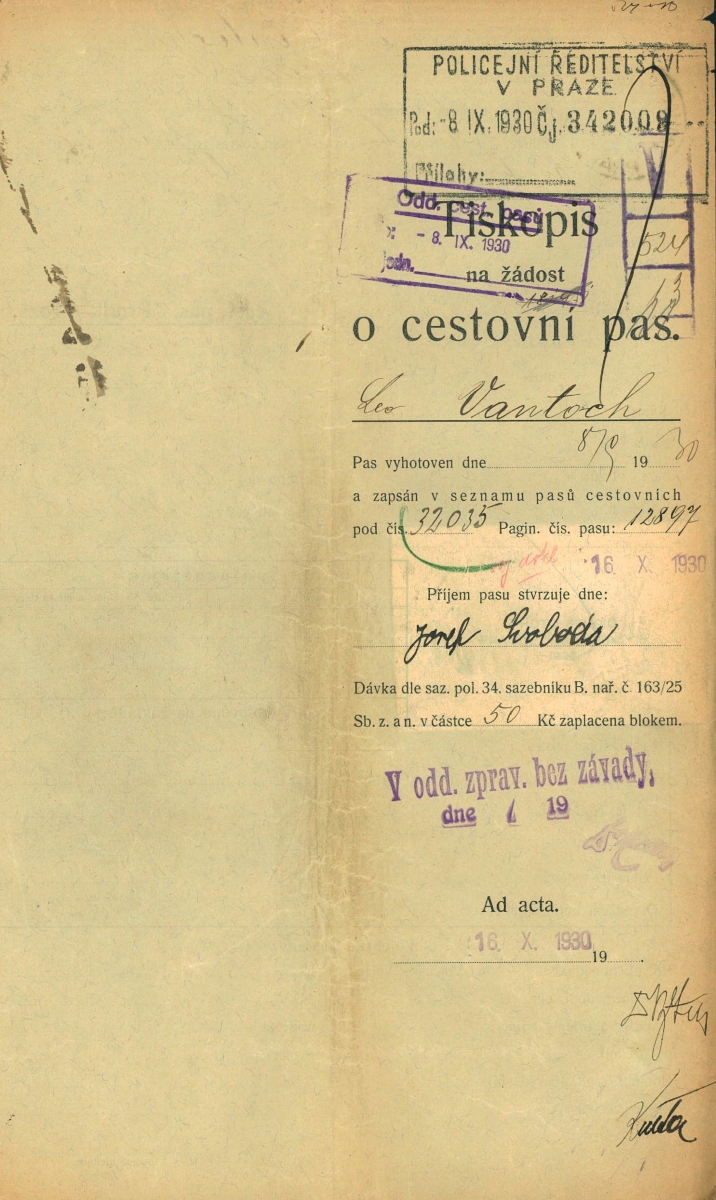 POLICEJNÍ ŘEDITELSTVÍ
V PRAZE
Pod: -8 IX. 1930 Čj. 342008
Přílohy:
Odd. cest. pasů
- 8. IX. 1930
jedn.
524
Tiskopis
na žádost
o cestovní pas.
Leo Vantoch
Pas vyhotoven dne 8/9 1930
a zapsán v seznamu pasů cestovních
pod čís. 32035 Pagin. čís. pasu: 12897
16. X. 1930
Příjem pasu stvrzuje dne:
Josef Svoboda
Dávka dle saz. pol. 34. sazebníku B. nař. č. 163/25
Sb. z. a n. v částce 50 Kč zaplacena blokem.
V odd. zprav. bez závady,
dne 19
Ad acta.
16. X. 1930
19